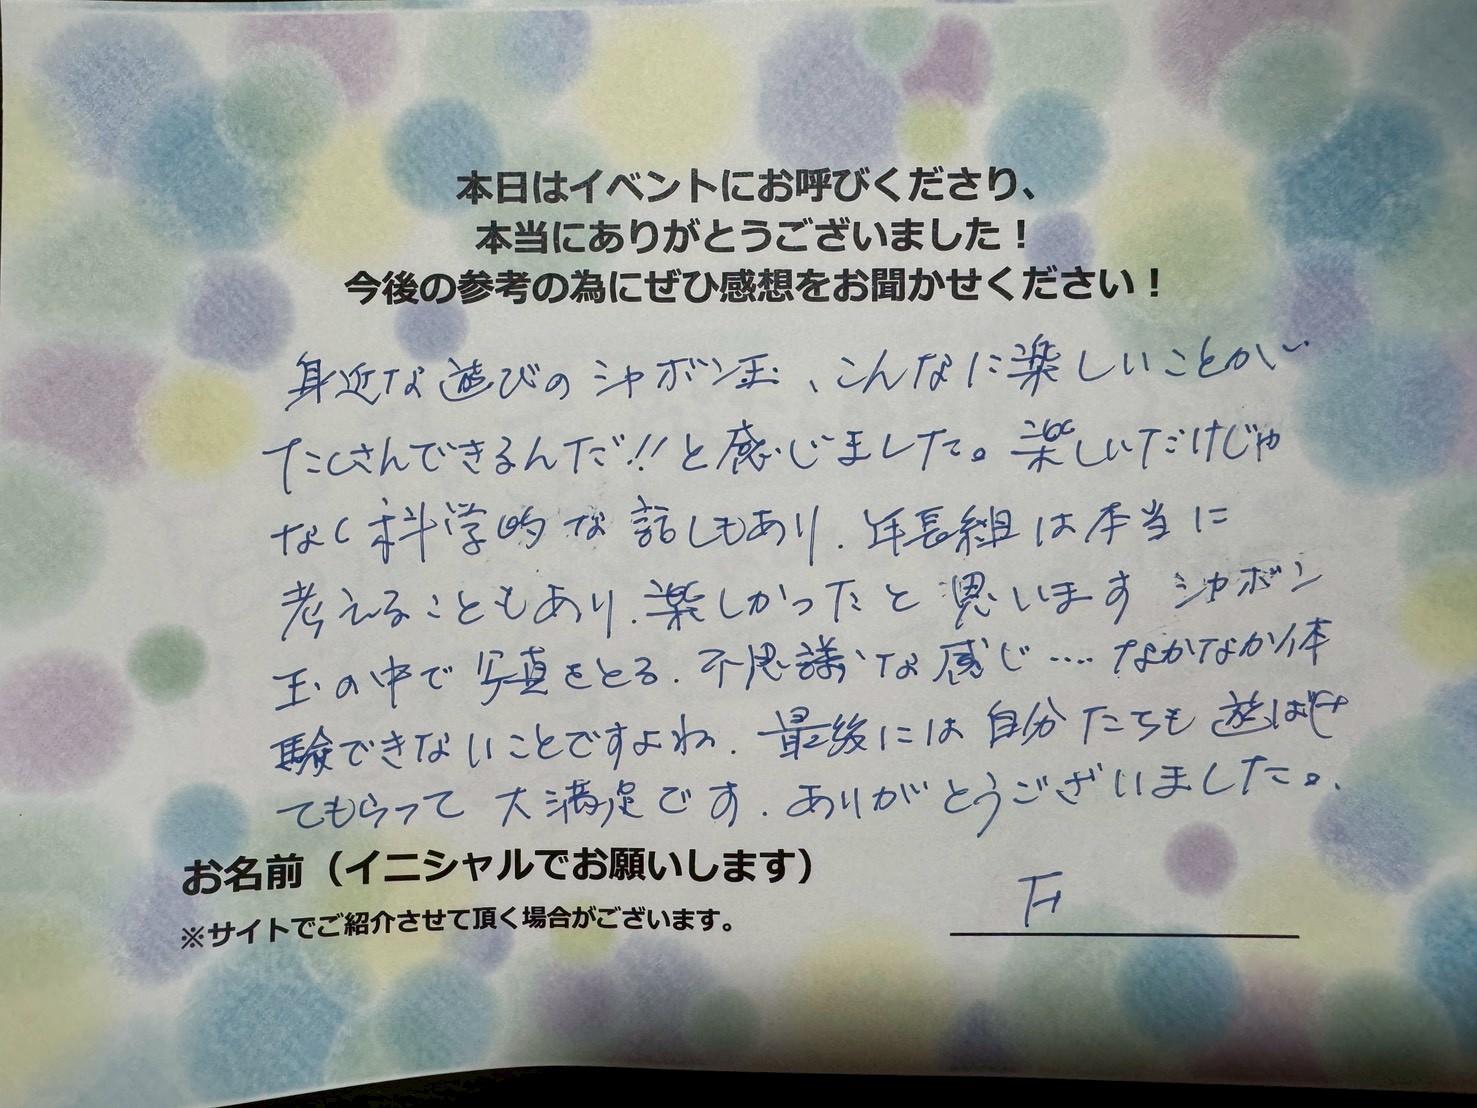 本日はイベントにお呼びくださり、
本当にありがとうございました！
今後の参考の為にぜひ感想をお聞かせください！
身近な遊びのシャボン玉、こんなに楽しいことが
たくさんできるんだ!!と感じました。楽しいだけじゃ
なく科学的な話しもあり、年長組は本当に
考えることもあり、楽しかったと思います シャボン
玉の中で写真をとる、不思議な感じ…. なかなか体
験できないことですよね、最後には自分たちも遊ばせ
てもらって大満足です。ありがとうございました。
お名前（イニシャルでお願いします）
※サイトでご紹介させて頂く場合がございます。